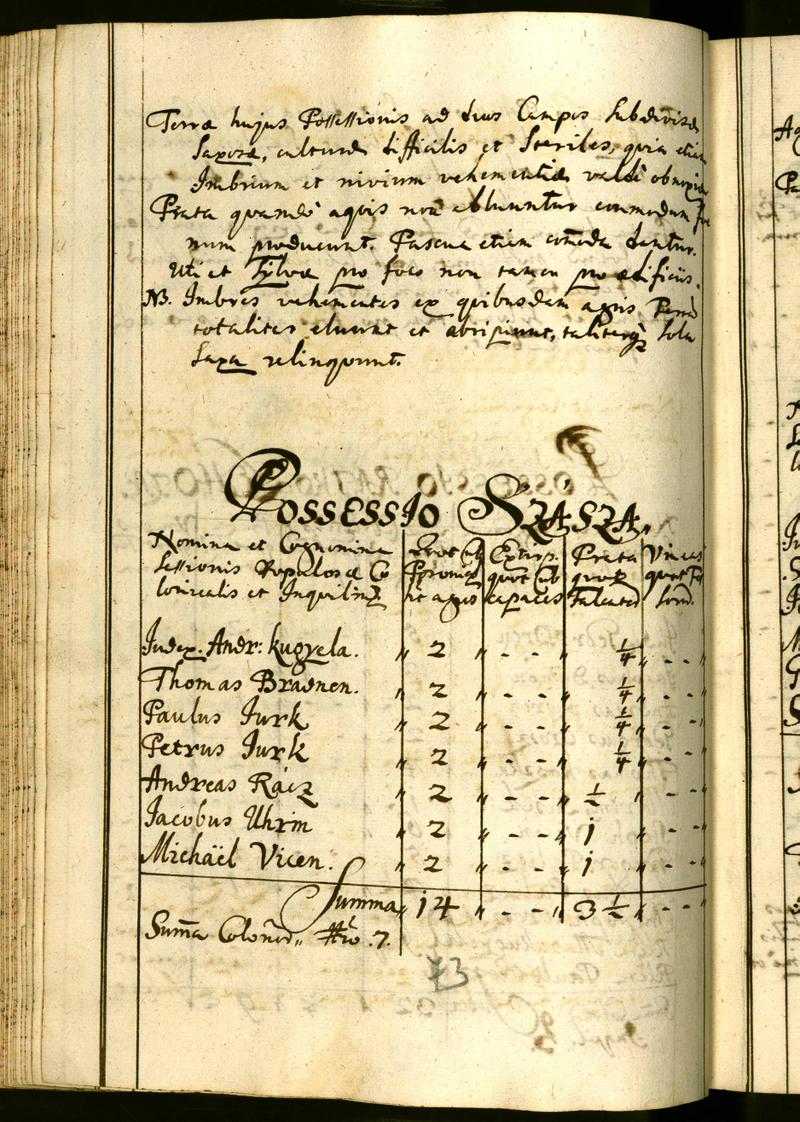 Terræ hujus Possessionis ad duas Campos Subdivisæ
Saxosæ, culturæ difficilis et Steriles, quia etiam
Imbrium et nivium vehementiæ valdè obnoxiæ
Prata quandò aquis non abluuntur commodum fœ
num producunt. Pascua etiam comoda dantur.
Uti et Sylvæ pro foco non tamen pro ædificiis.
NB. Imbres vehementes ex quibusdam agris Terrã
totaliter eluunt et abripiunt, taliterq sola
Saxa relinquunt.
Possessio Szásza.
Nomina et Cognomina
sessionis Populosæ Co
lonicalis et Inquilin
Quot cub
Posonien
hic agros
Extirp.
quot cub
capaces
Prata
quot
falcator
Vineas
quot Fo
sorũ
Judex. Andr: Kugyela. „ 2 „ - - „ 1/4 „ - - „
Thomas Bradnen. „ 2 „ - - „ 1/4 „ - - „
Paulus Jurk „ 2 „ - - „ 1/4 „ - - „
Petrus Jurk „ 2 „ - - „ 1/4 „ - - „
Andreas Rácz „ 2 „ - - „ 1/2 „ - - „
Jacobus Uhrin „ 2 „ - - „ 1 „ - - „
Michäel Vicen. „ 2 „ - - „ 1 „ - - „
Summa „ 14 „ - - „ 3 1/2 „ - - „
Suma Colonor„ Nrò .7.
73